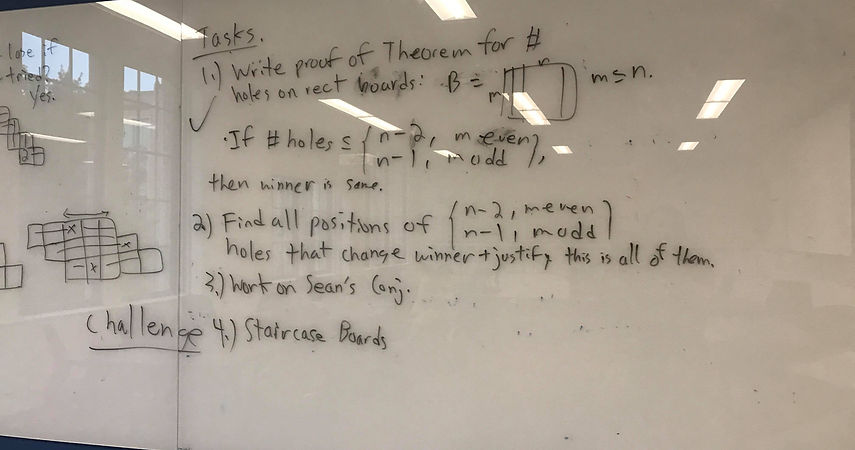 - lose if
- tried?
Yes.
Tasks.
1.) Write proof of Theorem for #
holes on rect boards: B = m n m ≤ n.
✓
· If # holes ≤ { n-2, m even
n-1, m odd },
then winner is same.
2) Find all positions of { n-2, m even
n-1, m odd }
holes that change winner + justify this is all of them.
3.) Work on Sean's Conj.
Challenge 4.) Staircase Boards
x
x
x
2